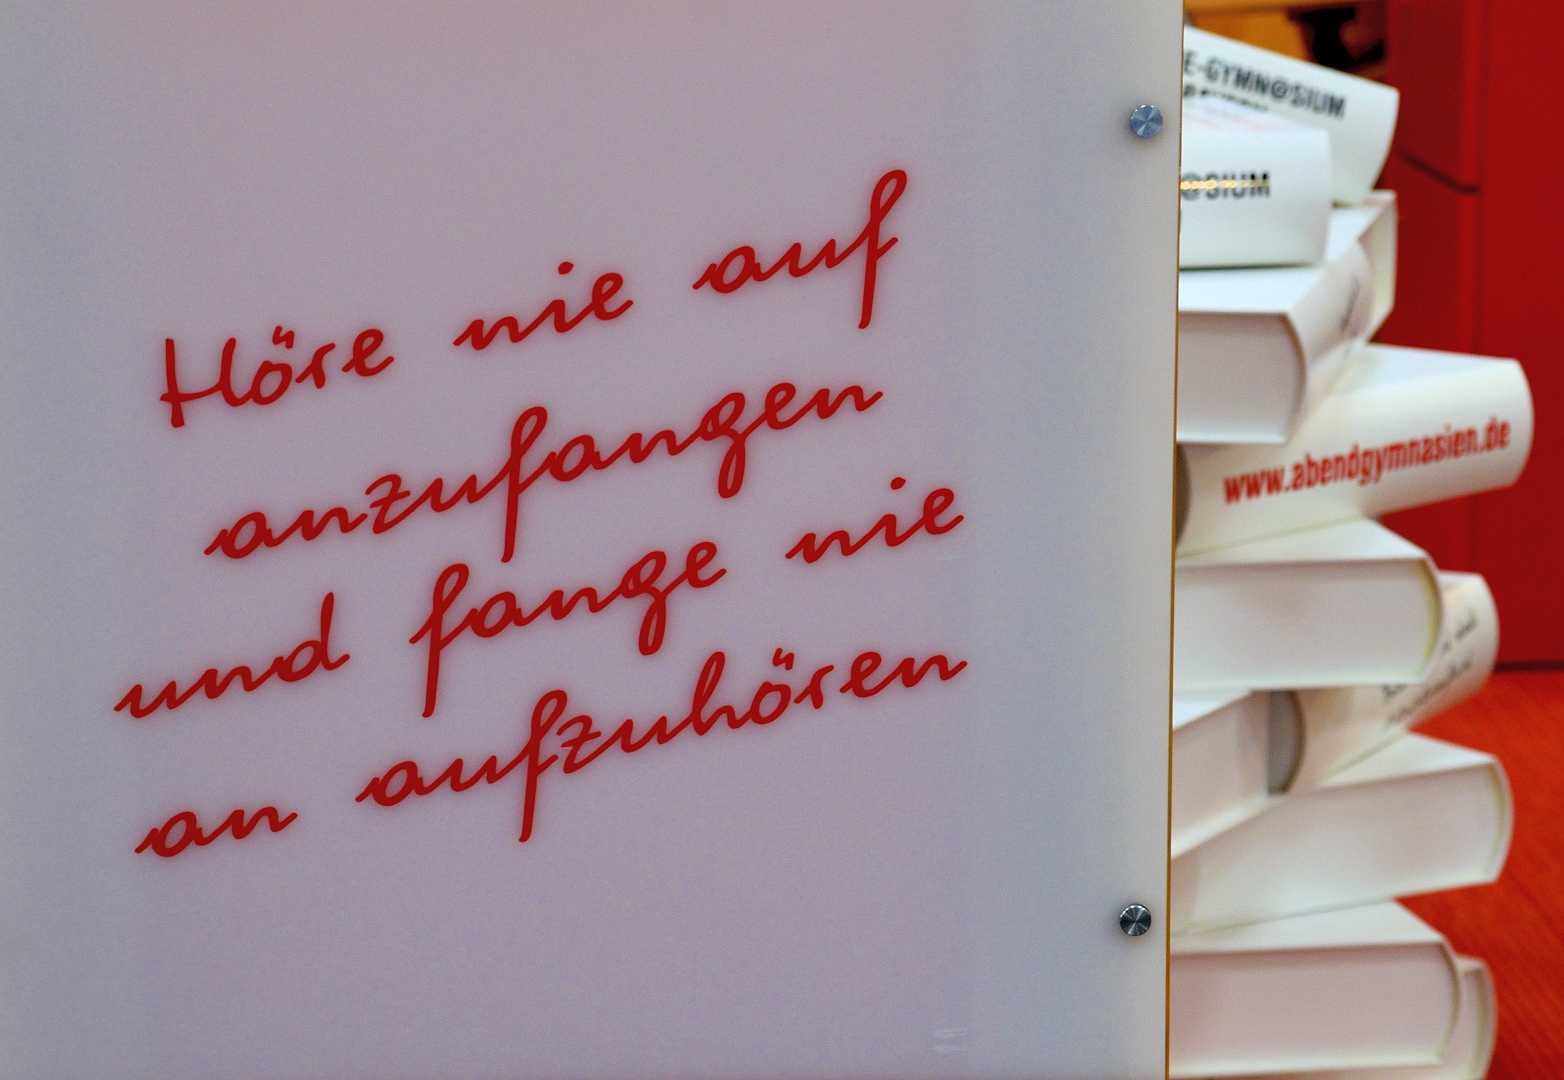 Höre nie auf
anzufangen
und fange nie
an aufzuhören
E-GYMN@SIUM
@SIUM
www.abendgymnasien.de